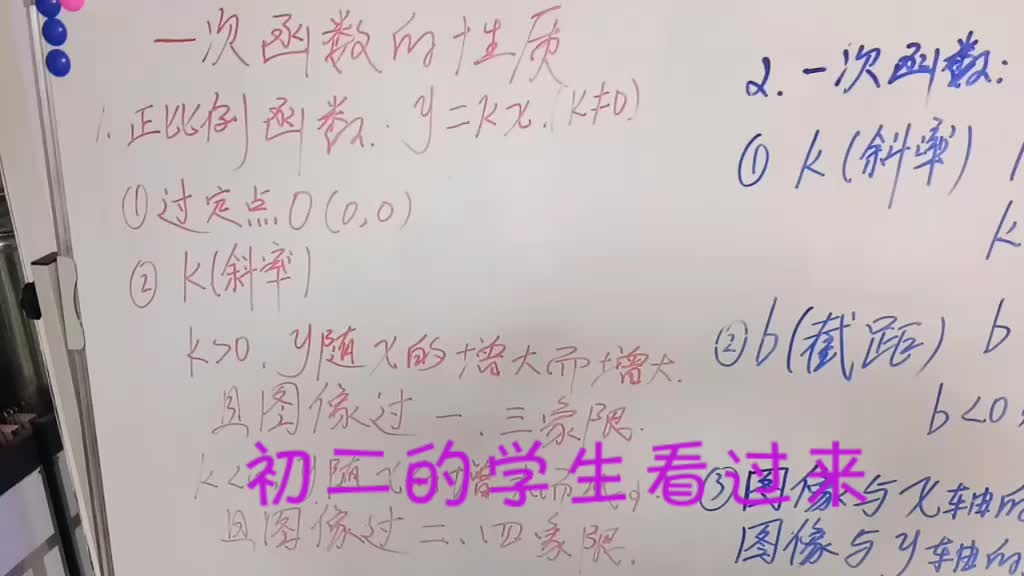 一次函数的性质
1. 正比例函数: y=kx.(k≠0)
①过定点O(0,0)
②k(斜率)
k>0.y随x的增大而增大.
且图像过一、三象限.
k< 随x 增
且图像过二、四象限.
2.一次函数:
①k(斜率)
k
②b(截距) b
b<0
③图像与x轴的
图像与y轴的
初二的学生看过来